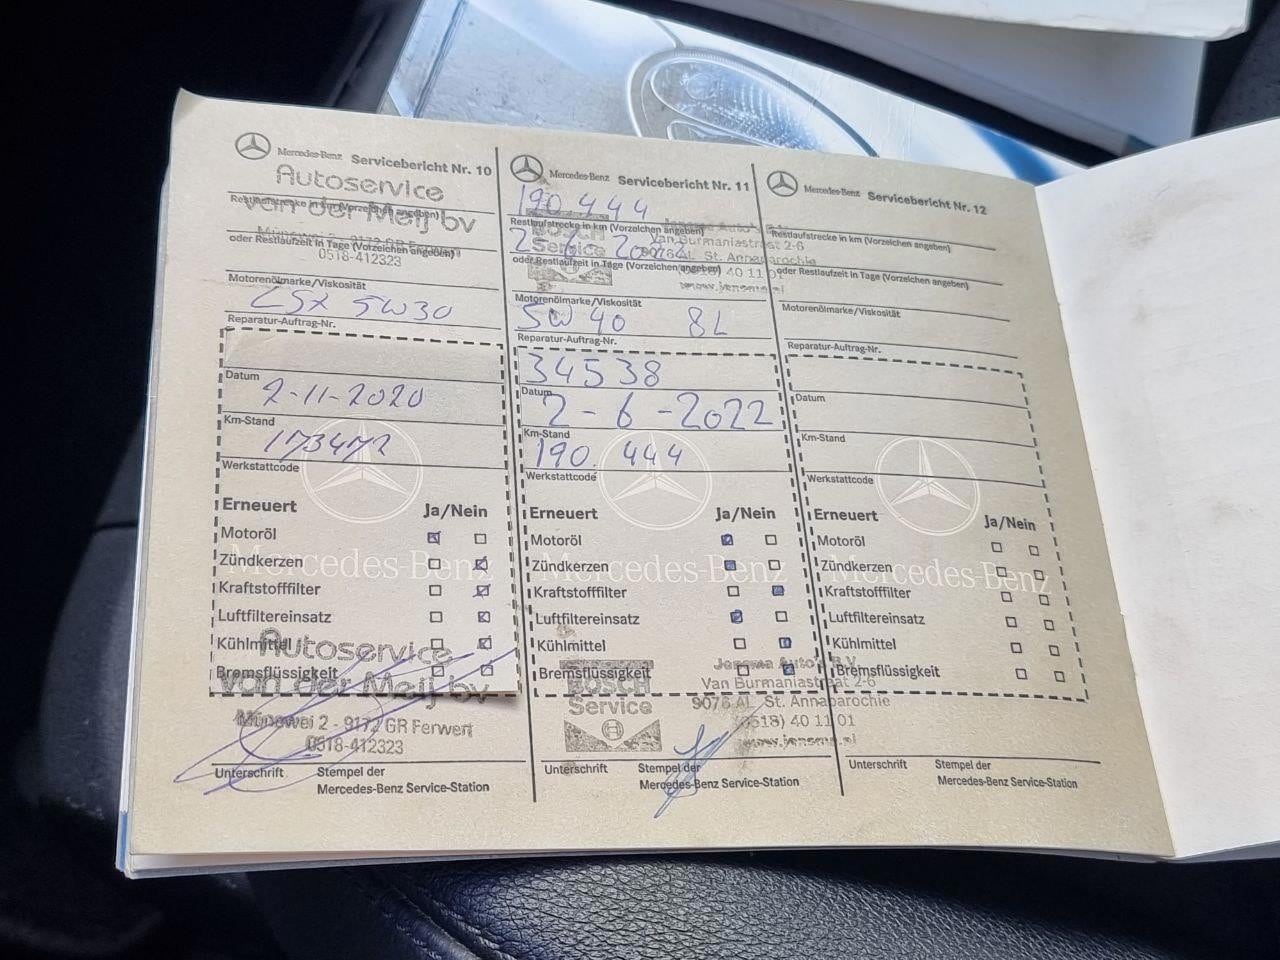 Mercedes-Benz Servicebericht Nr. 10
Autoservice
van der Meij bv
Restlaufstrecke in km (Vorzeichen angeben)
9172 GR Ferwert
oder Restlaufzeit in Tage (Vorzeichen angeben)
0518-412323
Motorenölmarke/Viskosität
5W30
Reparatur-Auftrag-Nr.
Datum
2-11-2020
Km-Stand
173472
Werkstattcode
Erneuert Ja/Nein
Motoröl
Zündkerzen
Kraftstofffilter
Luftfiltereinsatz
Kühlmittel
Bremsflüssigkeit
Autoservice
van der Meij bv
2 - 9172 GR Ferwert
0518-412323
Unterschrift Stempel der
Mercedes-Benz Service-Station
Mercedes-Benz Servicebericht Nr. 11
190.444
Restlaufstrecke in km (Vorzeichen angeben)
BOSCH
Service
Jensma Auto's
Van Burmaniastraat 2-6
9076 AL St. Annaparochie
40 11 01
www.jensma.nl
oder Restlaufzeit in Tage (Vorzeichen angeben)
Motorenölmarke/Viskosität
5W40 8L
Reparatur-Auftrag-Nr.
34538
Datum
2-6-2022
Km-Stand
190.444
Werkstattcode
Erneuert Ja/Nein
Motoröl
Zündkerzen
Kraftstofffilter
Luftfiltereinsatz
Kühlmittel
Bremsflüssigkeit
BOSCH
Service
Jensma Auto's B.V.
Van Burmaniastraat 2-6
9076 AL St. Annaparochie
(0518) 40 11 01
www.jensma.nl
Unterschrift Stempel der
Mercedes-Benz Service-Station
Mercedes-Benz Servicebericht Nr. 12
Restlaufstrecke in km (Vorzeichen angeben)
oder Restlaufzeit in Tage (Vorzeichen angeben)
Motorenölmarke/Viskosität
Reparatur-Auftrag-Nr.
Datum
Km-Stand
Werkstattcode
Erneuert Ja/Nein
Motoröl
Zündkerzen
Kraftstofffilter
Luftfiltereinsatz
Kühlmittel
Bremsflüssigkeit
Unterschrift Stempel der
Mercedes-Benz Service-Station
Mercedes-Benz
Mercedes-Benz
Mercedes-Benz